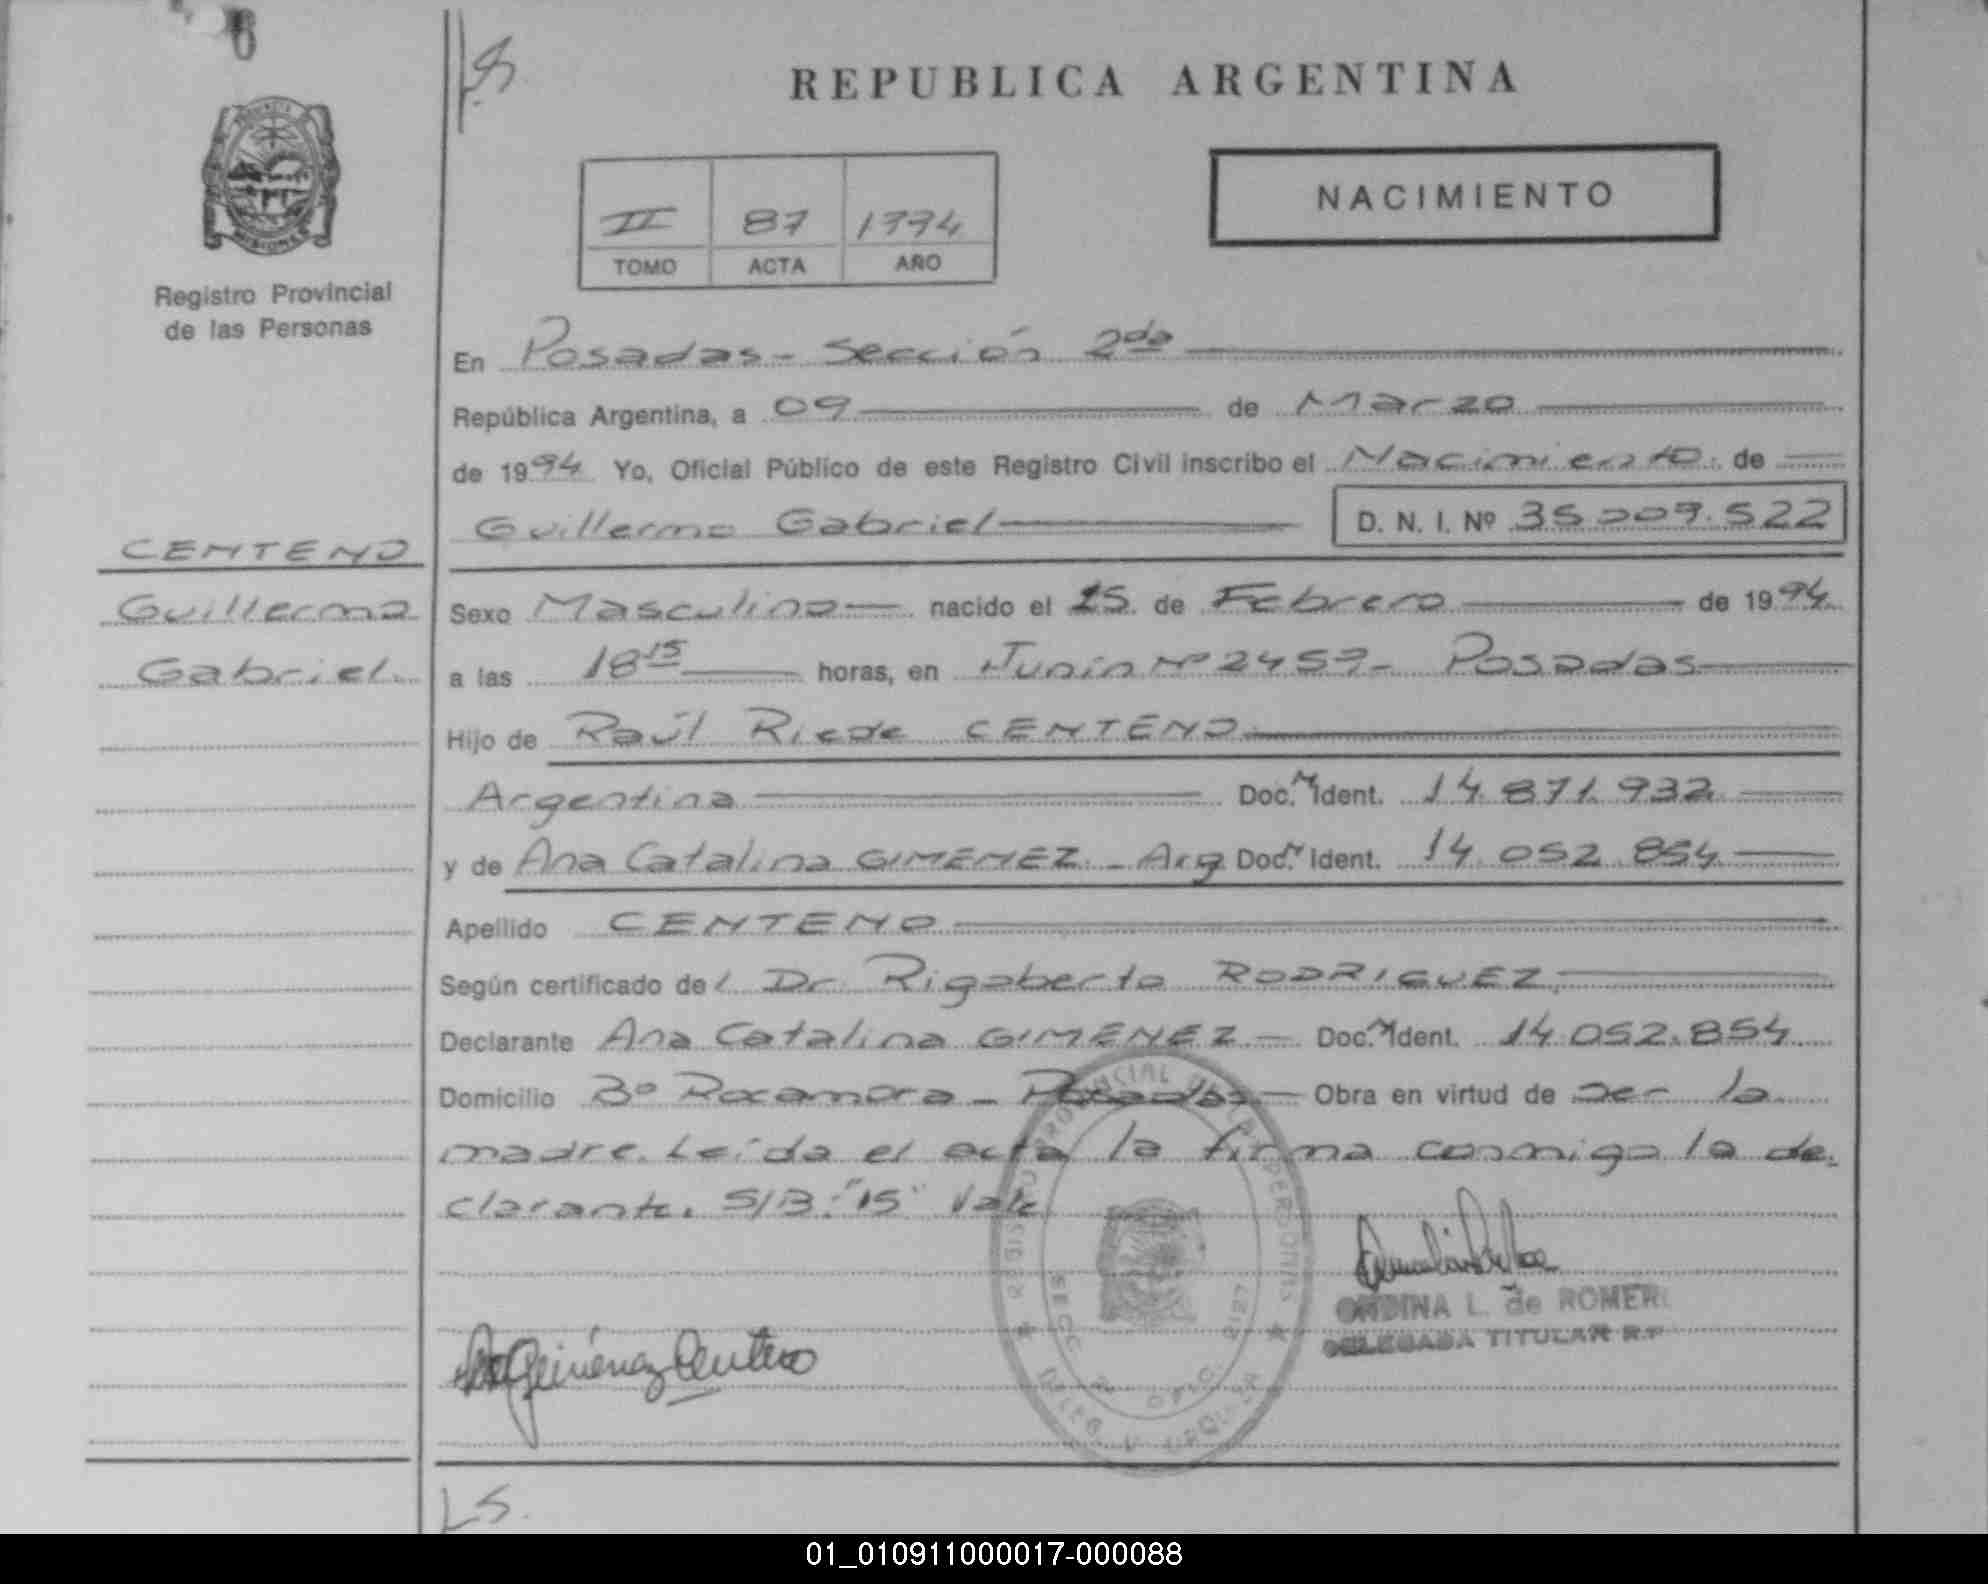 6
LS
REPUBLICA ARGENTINA
NACIMIENTO
II 87 1994
TOMO ACTA AÑO
PROVINCIA DE
MISIONES
Registro Provincial
de las Personas
En Posadas - Sección 2da
República Argentina, a 09 de Marzo
de 1994 Yo, Oficial Público de este Registro Civil inscribo el Nacimiento de
Guillermo Gabriel D. N. I. Nº 35.009.522
CENTENO
Guillermo
Gabriel.
Sexo Masculino nacido el 15 de Febrero de 1994
a las 18 15 horas, en Junín Nº 2459 - Posadas
Hijo de Raúl Ricde CENTENO
Argentina Doc. N Ident. 14.871.932
y de Ana Catalina GIMENEZ - Arg Doc. N Ident. 14.052.854
Apellido CENTENO
Según certificado del Dr. Rigoberto RODRIGUEZ.
Declarante Ana Catalina GIMENEZ - Doc. N Ident. 14.052.854
Domicilio Bº Rocamora - Posadas - Obra en virtud de ser la
madre. Leída el acta la firma conmigo la de-
clarante. S/B: "15" Vale
REGISTRO PROVINCIAL DE LAS PERSONAS
SECC. 2ª OFIC. 2127
DELEG. V. URQUIZA
Giménez Centeno
ONDINA L. de ROMERO
DELEGADA TITULAR R.P.
LS.
01_010911000017-000088